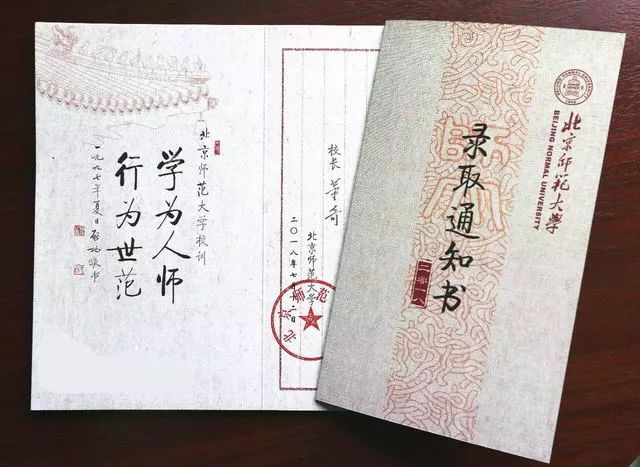 北京师范大学校训
学为人师
行为世范
一九九七年夏日启功敬书
校长 董奇
北京师范大学
二〇一八年七月
北京师范
BEIJING NORMAL UNIVERSITY
1902
北京師範大學
BEIJING NORMAL UNIVERSITY
录取通知书
二零一八